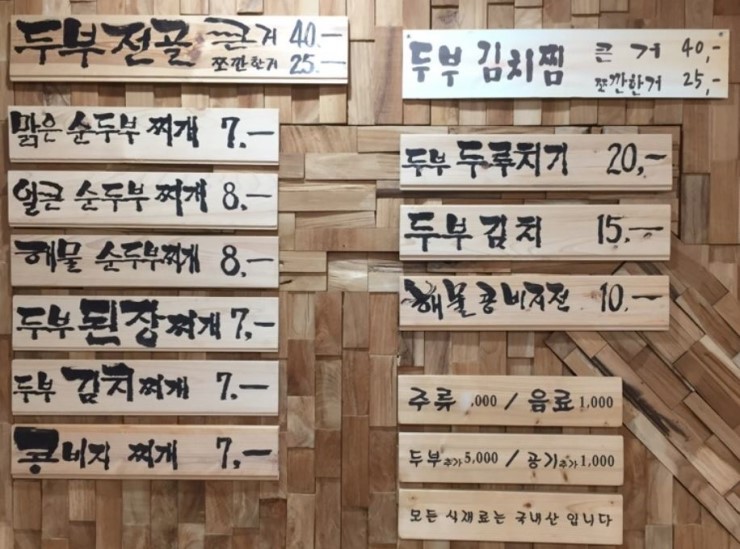 두부전골 큰거 40.-
쪼깐한거 25.-
맑은 순두부 찌개 7.-
얼큰 순두부 찌개 8.-
해물 순두부찌개 8.-
두부 된장찌개 7,-
두부 김치찌개 7.-
콩비지 찌개 7,-
두부 김치찜 큰 거 40,-
쪼깐한거 25,-
두부 두루치기 20,-
두부 김치 15.-
해물콩비지전 10.-
주류 ,000 / 음료 1,000
두부추가 5,000 / 공기추가 1,000
모든 식재료는 국내산 입니다